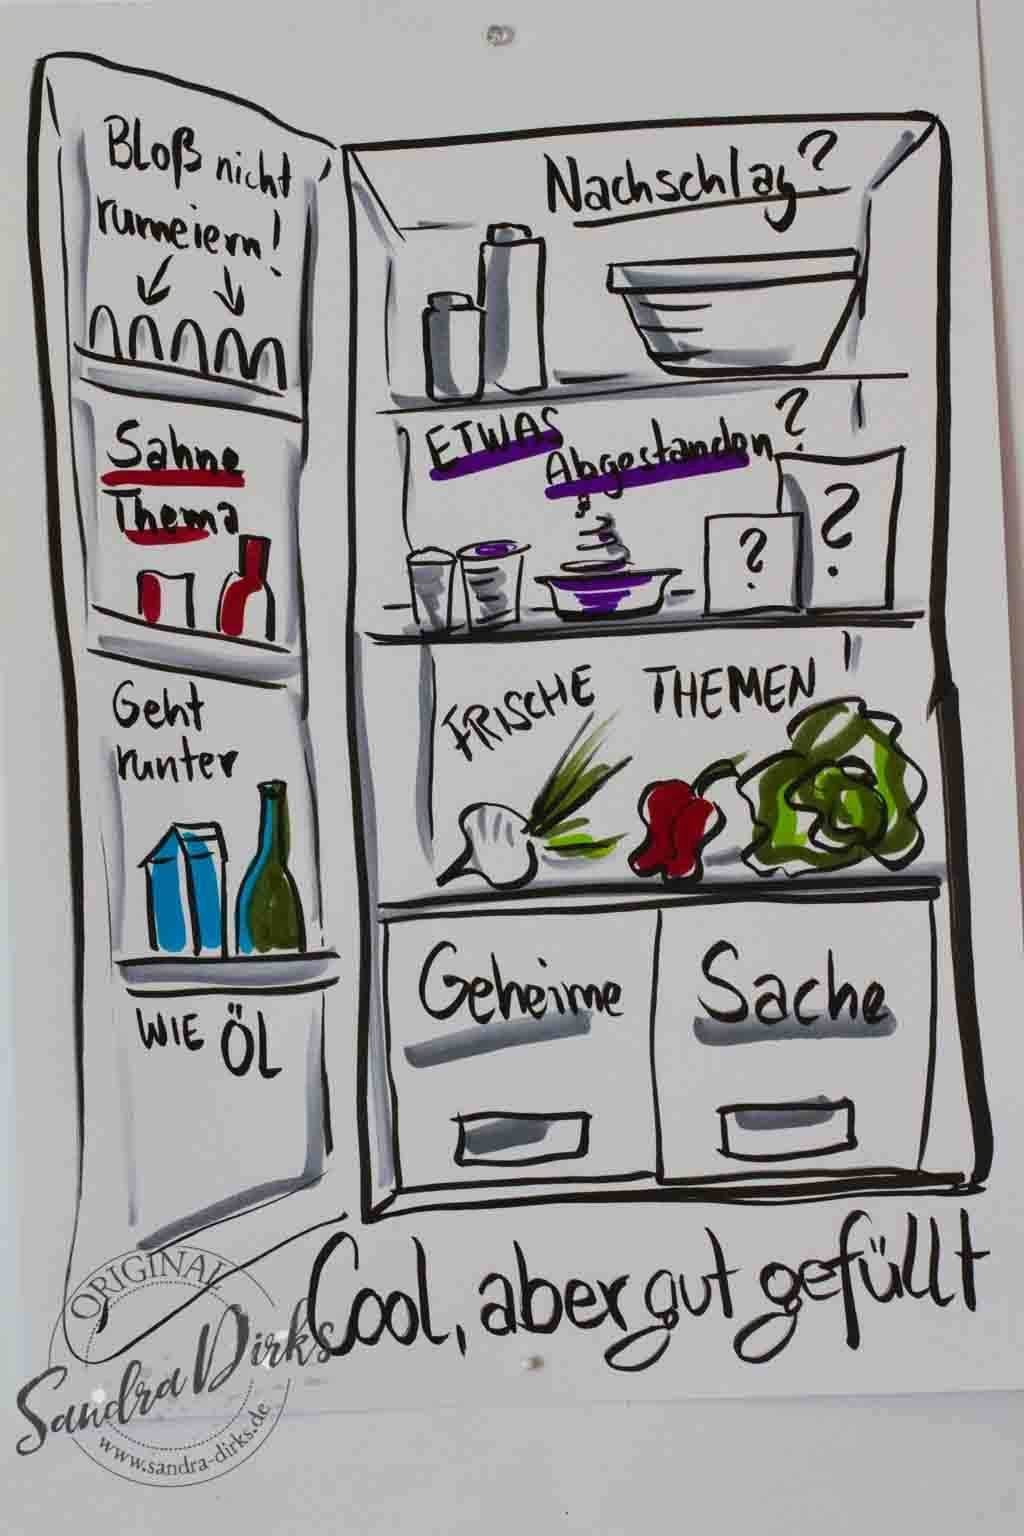 Bloß nicht
rumeiern!
Sahne
Thema
Geht
runter
WIE ÖL
Nachschlag?
ETWAS
Abgestanden?
?
?
FRISCHE THEMEN!
Geheime
Sache
Cool, aber gut gefüllt
ORIGINAL
Sandra Dirks
www.sandra-dirks.de